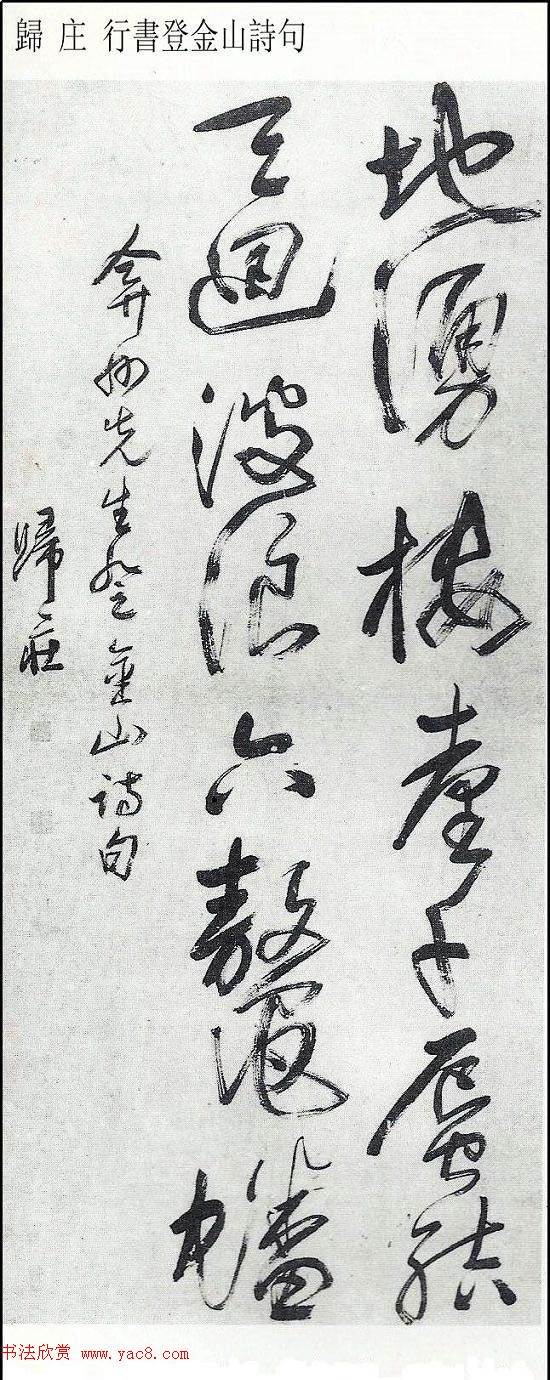 歸 庄 行書登金山詩句
地湧樓臺千蜃結
天迴波浪六鼇蟠
弇州先生登金山詩句
歸莊
书法欣赏 www.yac8.com